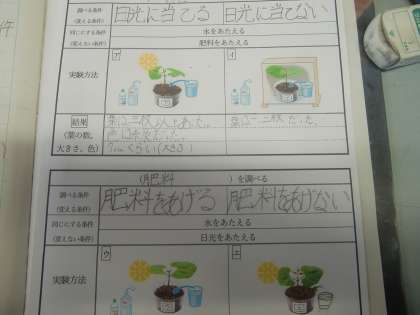 調べる条件
(変える条件)
日光に当てる 日光に当てない
同じにする条件
(変えない条件)
水をあたえる
肥料をあたえる
実験方法
ア イ
結果
(葉の数、
大きさ、色)
(肥料 )を調べる
調べる条件
(変える条件)
肥料をあげる 肥料をあげない
同じにする条件
(変えない条件)
水をあたえる
日光をあたえる
実験方法
ウ エ